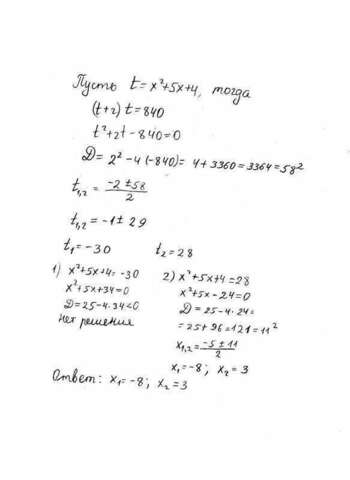 Пусть t=x²+5x+4, тогда
(t+2)t=840
t²+2t-840=0
D=2²-4(-840)=4+3360=3364=58²
t₁,₂=(-2±58)/2
t₁,₂=-1±29
t₁=-30 t₂=28
1) x²+5x+4=-30
x²+5x+34=0
D=25-4·34<0
Нет решения
2) x²+5x+4=28
x²+5x-24=0
D=25-4·24=
=25+96=121=11²
x₁,₂=(-5±11)/2
x₁=-8; x₂=3
Ответ: x₁=-8; x₂=3